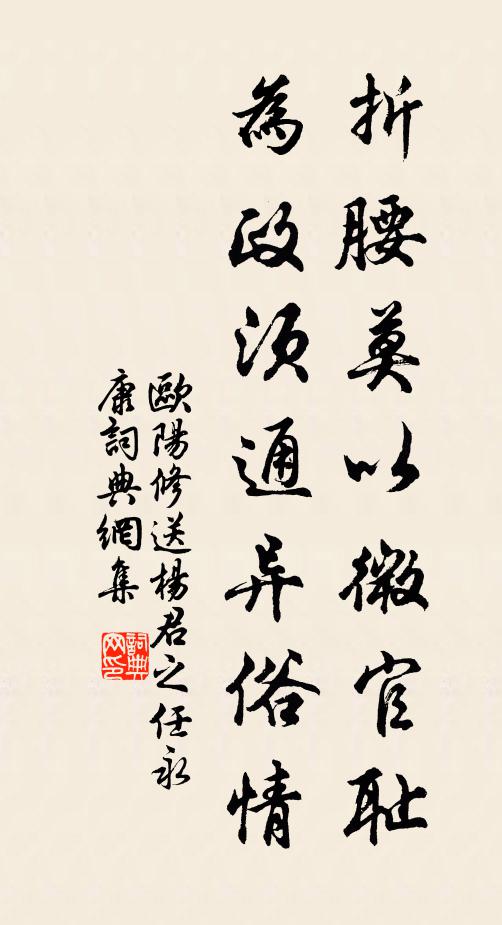 折腰莫以微官耻
為政須通异俗情
歐陽修送楊君之任永
康詞典網集
詞典網印